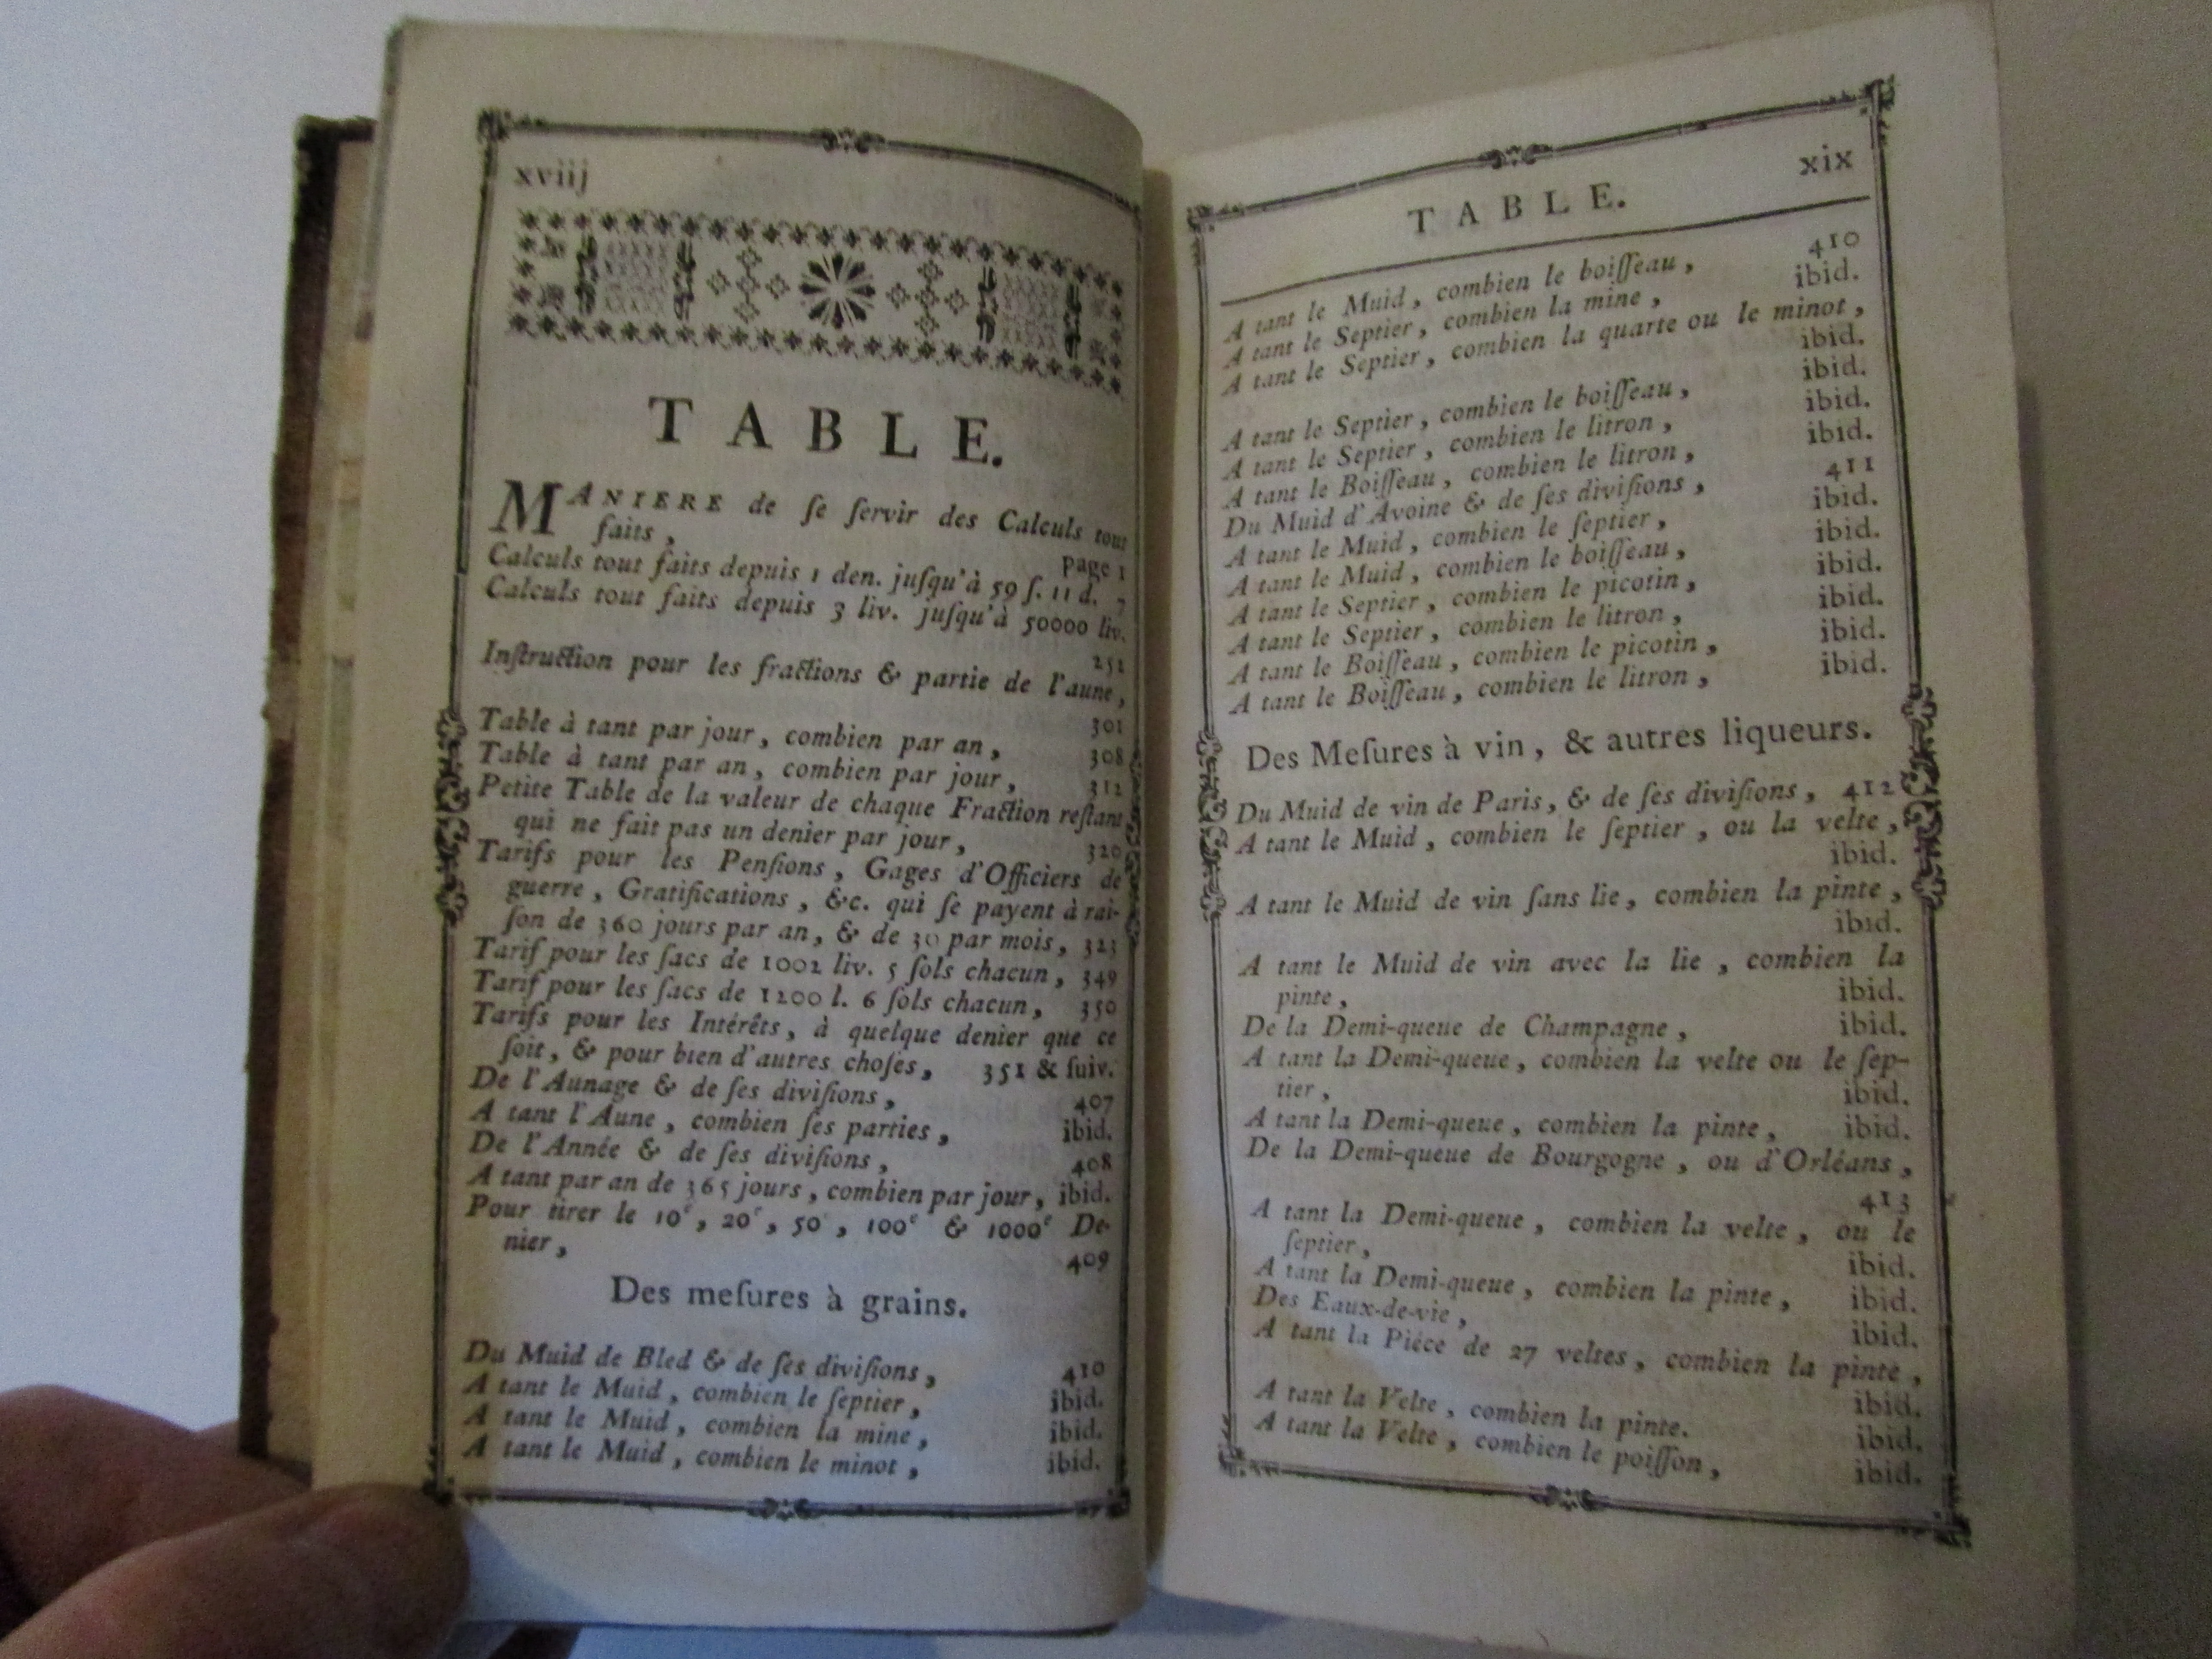 xviij
TABLE.
MANIERE de ſe ſervir des Calculs tout
faits, page 1
Calculs tout faits depuis 1 den. juſqu'à 59 ſ. 11 d. 7
Calculs tout faits depuis 3 liv. juſqu'à 50000 liv.
251
Inſtruction pour les fractions & partie de l'aune,
301
Table à tant par jour, combien par an, 308
Table à tant par an, combien par jour, 312
Petite Table de la valeur de chaque Fraction reſtant
qui ne fait pas un denier par jour, 320
Tarifs pour les Penſions, Gages d'Officiers de
guerre, Gratifications, &c. qui ſe payent à rai-
ſon de 360 jours par an, & de 30 par mois, 323
Tarif pour les ſacs de 1002 liv. 5 ſols chacun, 349
Tarif pour les ſacs de 1200 l. 6 ſols chacun, 350
Tarifs pour les Intérêts, à quelque denier que ce
ſoit, & pour bien d'autres choſes, 351 & ſuiv.
De l'Aunage & de ſes diviſions, 407
A tant l'Aune, combien ſes parties, ibid.
De l'Année & de ſes diviſions, 408
A tant par an de 365 jours, combien par jour, ibid.
Pour tirer le 10e, 20e, 50e, 100e & 1000e De-
nier, 409
Des meſures à grains.
Du Muid de Bled & de ſes diviſions, 410
A tant le Muid, combien le ſeptier, ibid.
A tant le Muid, combien la mine, ibid.
A tant le Muid, combien le minot, ibid.
xix
TABLE.
A tant le Muid, combien le boiſſeau, 410
A tant le Septier, combien la mine, ibid.
A tant le Septier, combien la quarte ou le minot,
ibid.
A tant le Septier, combien le boiſſeau, ibid.
A tant le Septier, combien le litron, ibid.
A tant le Boiſſeau, combien le litron, ibid.
Du Muid d'Avoine & de ſes diviſions, 411
A tant le Muid, combien le ſeptier, ibid.
A tant le Muid, combien le boiſſeau, ibid.
A tant le Septier, combien le picotin, ibid.
A tant le Septier, combien le litron, ibid.
A tant le Boiſſeau, combien le picotin, ibid.
A tant le Boiſſeau, combien le litron, ibid.
Des Meſures à vin, & autres liqueurs.
Du Muid de vin de Paris, & de ſes diviſions, 412
A tant le Muid, combien le ſeptier, ou la velte,
ibid.
A tant le Muid de vin ſans lie, combien la pinte,
ibid.
A tant le Muid de vin avec la lie, combien la
pinte, ibid.
De la Demi-queue de Champagne, ibid.
A tant la Demi-queue, combien la velte ou le ſep-
tier, ibid.
A tant la Demi-queue, combien la pinte, ibid.
De la Demi-queue de Bourgogne, ou d'Orléans,
413
A tant la Demi-queue, combien la velte, ou le
ſeptier, ibid.
A tant la Demi-queue, combien la pinte, ibid.
Des Eaux-de-vie, ibid.
A tant la Piéce de 27 veltes, combien la pinte,
ibid.
A tant la Velte, combien la pinte. ibid.
A tant la Velte, combien le poiſſon, ibid.